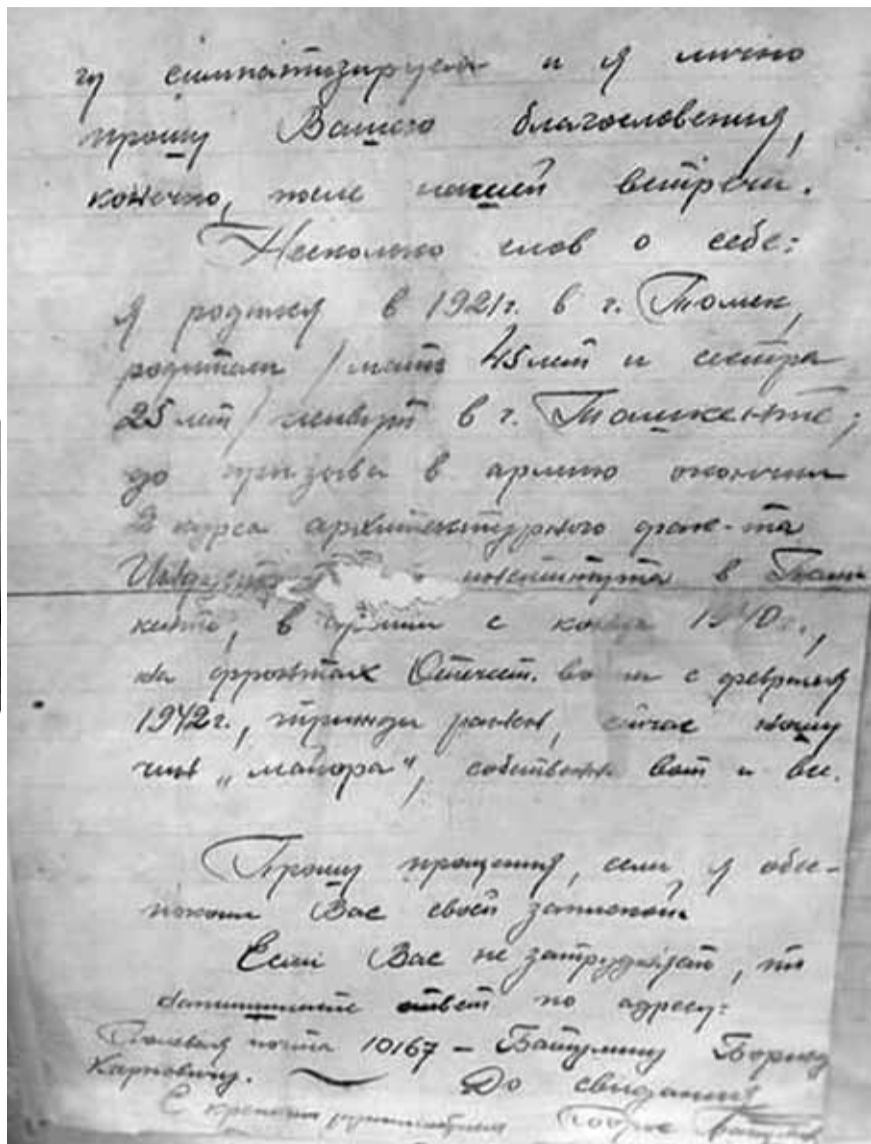 гу симпатизируем и я лично
прошу Вашего благословения,
конечно, после нашей встречи.
Несколько слов о себе:
Я родился в 1921г. в г. Томск,
родители / мать 45 лет и сестра
25 лет / живут в г. Ташкенте;
до призыва в армию окончил
2 курса архитектурного фак-та
института в Таш
кенте, в армии с конца 1940г.,
на фронтах Отечест. во ны с февраля
1942г., трижды ранен, сейчас ношу
чин "майора", собственно вот и все.
Прошу прощения, если я обес-
покоил Вас своей запиской.
Если Вас не затрудняет, то
напишите ответ по адресу:
Полевая почта 10167 – Борису
Карповичу. До свидания
С крепким Борис